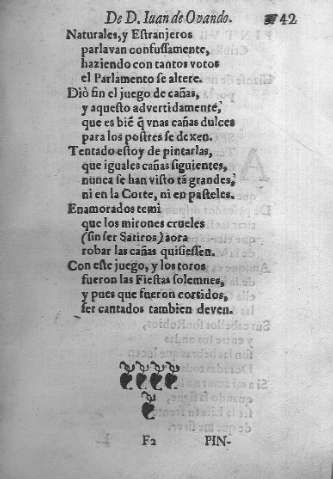 De D. Iuan de Ovando. 42
Naturales, y Estranjeros
parlavan confussamente,
haziendo con tantos votos
el Parlamento se altere.
Diò fin el juego de cañas,
y aquesto advertidamente,
que es biẽ q̃ vnas cañas dulces
para los postres se dexen.
Tentado estoy de pintarlas,
que iguales cañas siguientes,
nunca se han visto tã grandes,
ni en la Corte, ni en pasteles.
Enamorados temi
que los mirones crueles
(sin ser Satiros) aora
robar las cañas quisiessen.
Con este juego, y los toros
fueron las Fiestas solemnes,
y pues que fueron corridos,
ser cantados tambien deven.
F2 PIN-